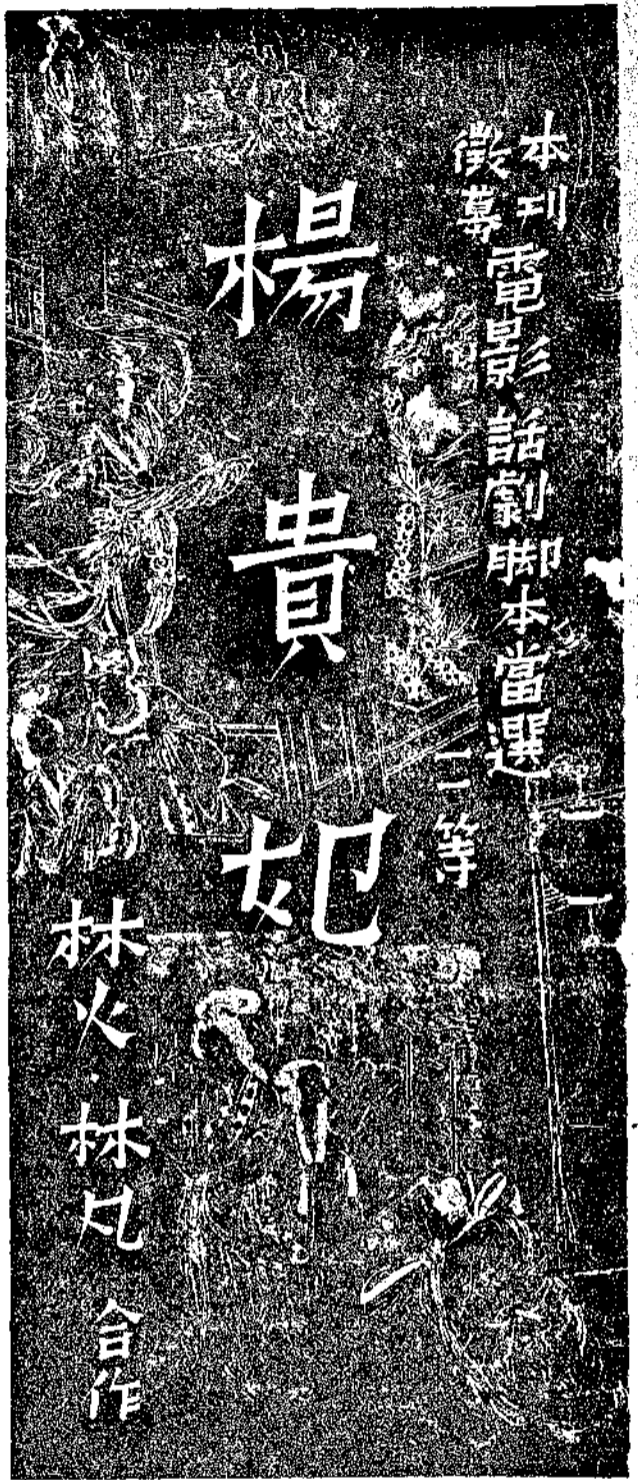 本刊
徵募
電影話劇脚本當選
二等
楊貴妃
林火·林凡 合作